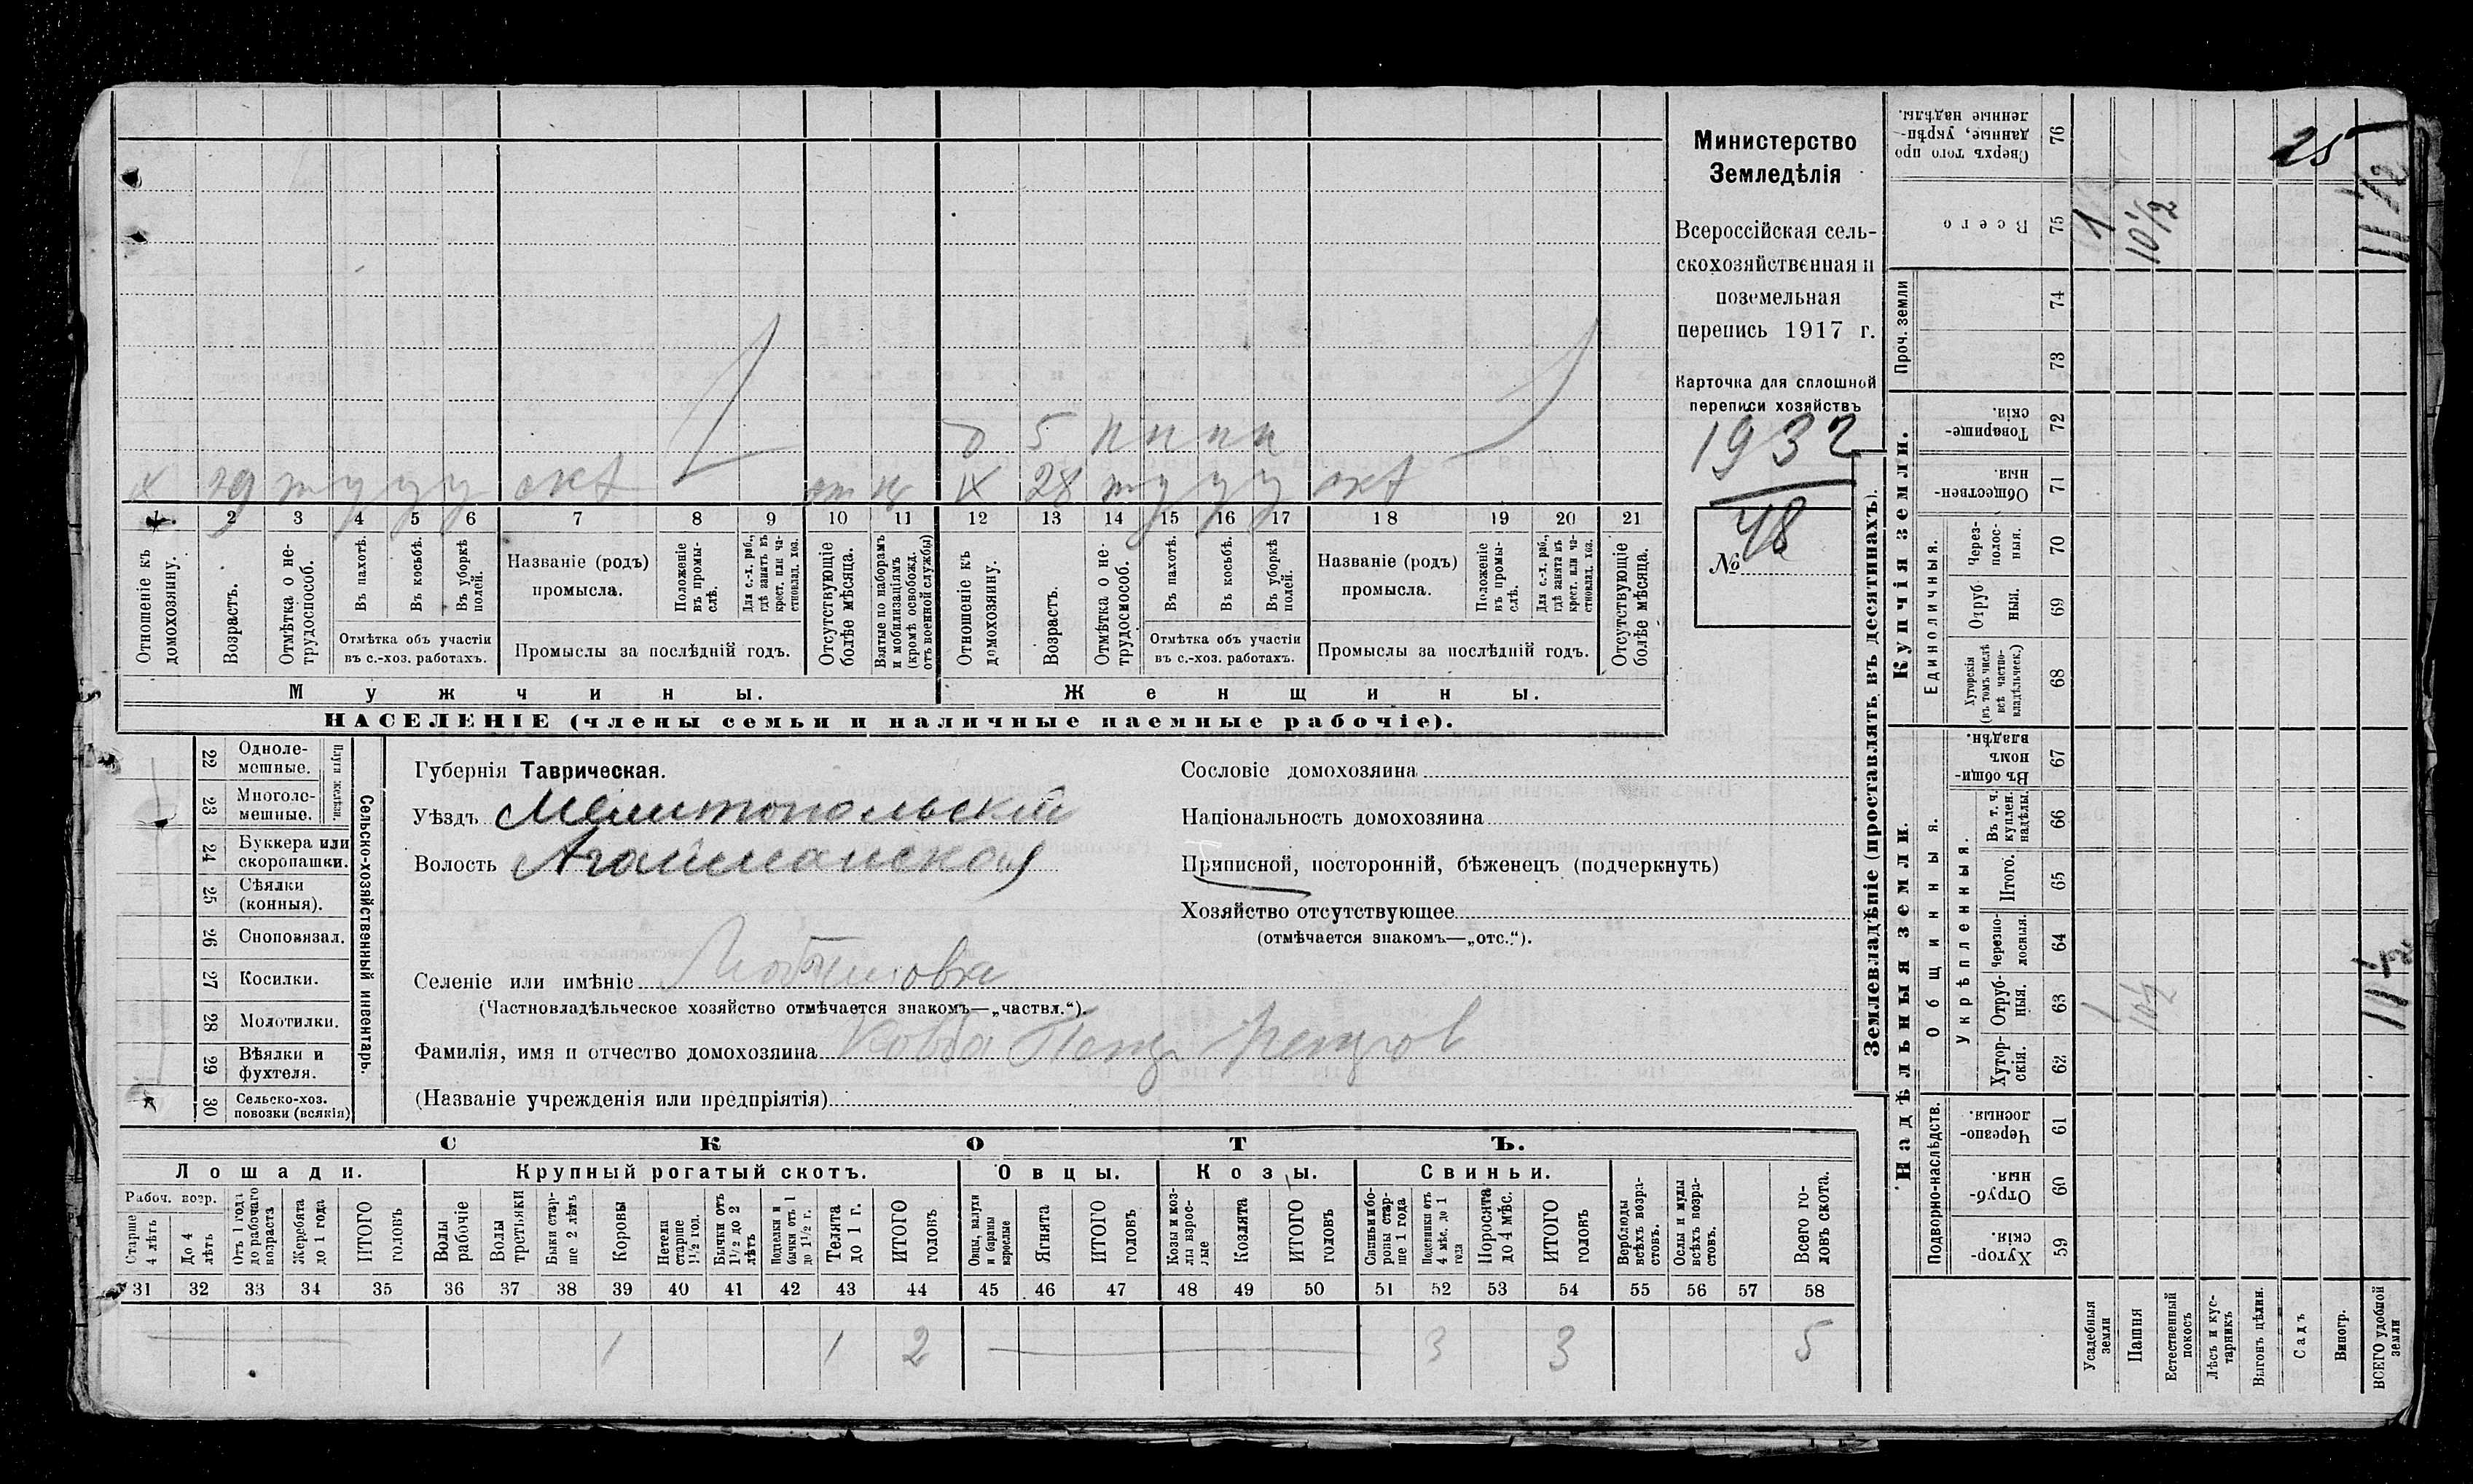 Министерство
Земледѣлія
Всероссійская сель-
скохозяйственная и
поземельная
перепись 1917 г.
Карточка для сплошной
переписи хозяйствъ
1932
48
№
б 5 н н н н
х 29 т у у у х 28 т у у у
1 2 3 4 5 6 7 8 9 10 11 12 13 14 15 16 17 18 19 20 21
Отношеніе къ домохозяину.
Возрастъ.
Отмѣтка о не-трудоспособ.
Въ пахотѣ.
Въ косьбѣ.
Въ уборкѣ полей.
Отмѣтка объ участіи
въ с.-хоз. работахъ.
Названіе (родъ)
промысла.
Положеніе въ промы-слѣ.
Для с.-х. раб., гдѣ занятъ въ крест. или ча-стновлад. хоз.
Промыслы за послѣдній годъ.
Отсутствующіе болѣе мѣсяца.
Взятые по наборамъ и мобилизаціямъ (кромѣ освобожд. отъ военной службы)
Отношеніе къ домохозяину.
Возрастъ.
Отмѣтка о не-трудоспособ.
Въ пахотѣ.
Въ косьбѣ.
Въ уборкѣ полей.
Отмѣтка объ участіи
въ с.-хоз. работахъ.
Названіе (родъ)
промысла.
Положеніе въ промы-слѣ.
Для с.-х. раб., гдѣ занята въ крест. или ча-стновлад. хоз.
Промыслы за послѣдній годъ.
Отсутствующіе болѣе мѣсяца.
Мужчины.
Женщины.
НАСЕЛЕНІЕ (члены семьи и наличные наемные рабочіе).
22 Одноле-мешные.
23 Многоле-мешные.
Плуги желѣзн.
24 Буккера или скоропашки.
25 Сѣялки (конныя).
26 Сноповязал.
27 Косилки.
28 Молотилки.
29 Вѣялки и фухтеля.
30 Сельско-хоз. повозки (всякія)
Сельско-хозяйственный инвентарь.
Губернія Таврическая.
Уѣздъ Мелитопольскій
Волость Агайманская
Селеніе или имѣніе
(Частновладѣльческое хозяйство отмѣчается знакомъ—„частвл.“).
Фамилія, имя и отчество домохозяина Ковба Петр Петров
(Названіе учрежденія или предпріятія)
Сословіе домохозяина
Національность домохозяина
Приписной, посторонній, бѣженецъ (подчеркнуть)
Хозяйство отсутствующее
(отмѣчается знакомъ—„отс.“).
СКОТЪ.
Лошади. Крупный рогатый скотъ. Овцы. Козы. Свиньи.
Рабоч. возр.
Старше 4 лѣтъ
До 4 лѣтъ
Отъ 1 года до рабочаго возраста
Жеребята до 1 года
ИТОГО головъ
Волы рабочіе
Волы третьяки
Быки стар-ше 2 лѣтъ
Коровы
Нетели старше 1½ год.
Бычки отъ 1½ до 2 лѣтъ
Подтелки и бычки отъ 1 до 1½ г.
Телята до 1 г.
ИТОГО головъ
Овцы, валухи и бараны взрослые
Ягнята
ИТОГО головъ
Козы и коз-лы взрос-лые
Козлята
ИТОГО головъ
Свиньи и бо-ровы стар-ше 1 года
Подсвинки отъ 4 мѣс. до 1 года
Поросята до 4 мѣс.
ИТОГО головъ
Верблюды всѣхъ возра-стовъ.
Ослы и мулы всѣхъ возра-стовъ.
Всего го-ловъ скота.
31 32 33 34 35 36 37 38 39 40 41 42 43 44 45 46 47 48 49 50 51 52 53 54 55 56 57 58
1 1 2 3 3 5
Землевладѣніе (проставлять въ десятинахъ).
Надѣльныя земли.
Купчія земли.
Проч. земли
Подворно-наслѣдств.
Общинныя.
Укрѣпленныя.
Единоличныя.
Сверхъ того про данные, укрѣп-ленные надѣлы. 76
Всего 75 1 10½ 11½
25
74
73
Товарище-скія. 72
Обществен-ныя 71
Через-полос-ныя. 70
Отруб-ныя. 69
Хуторскія (въ томъ числѣ всѣ частно-владѣльческ.) 68
Въ общин-номъ владѣн. 67
Въ т. ч. куплен. надѣлы. 66
Итого. 65
Черезпо-лосныя. 64
Отруб-ныя. 63 1 10½ 11½
Хутор-скія. 62
Черезпо-лосныя. 61
Отруб-ныя. 60
Хутор-скія. 59
Усадебныя земли
Пашня
Естественный покосъ
Лѣсъ и кус-тарникъ
Выгонъ цѣлин.
Садъ
Виногр.
ВСЕГО удобной земли